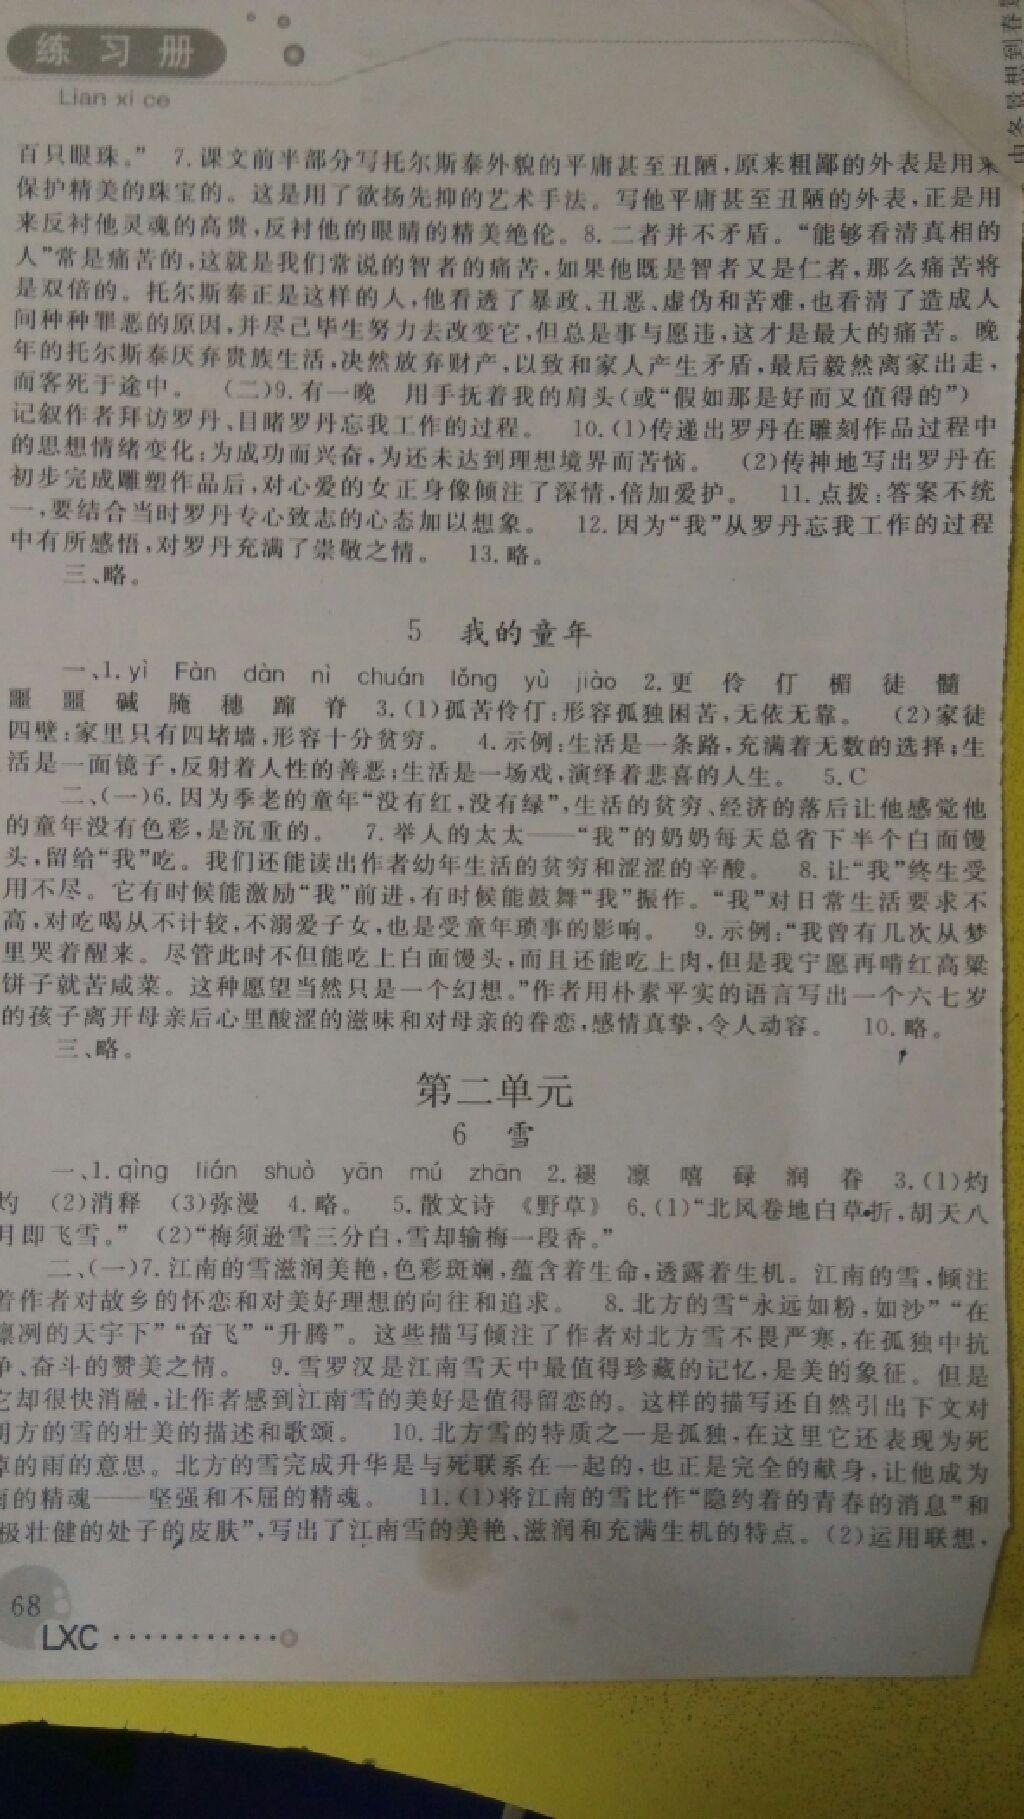 练习册
Lian xi ce
由冬景想到春
百只眼珠。” 7.课文前半部分写托尔斯泰外貌的平庸甚至丑陋,原来粗鄙的外表是用来
保护精美的珠宝的。这是用了欲扬先抑的艺术手法。写他平庸甚至丑陋的外表,正是用
来反衬他灵魂的高贵,反衬他的眼睛的精美绝伦。8.二者并不矛盾。“能够看清真相的
人”常是痛苦的,这就是我们常说的智者的痛苦,如果他既是智者又是仁者,那么痛苦将
是双倍的。托尔斯泰正是这样的人,他看透了暴政、丑恶、虚伪和苦难,也看清了造成人
间种种罪恶的原因,并尽己毕生努力去改变它,但总是事与愿违,这才是最大的痛苦。晚
年的托尔斯泰厌弃贵族生活,决然放弃财产,以致和家人产生矛盾,最后毅然离家出走,
而客死于途中。 (二)9.有一晚 用手抚着我的肩头(或“假如那是好而又值得的”)
记叙作者拜访罗丹、目睹罗丹忘我工作的过程。 10.(1)传递出罗丹在雕刻作品过程中
的思想情绪变化:为成功而兴奋,为还未达到理想境界而苦恼。 (2)传神地写出罗丹在
初步完成雕塑作品后,对心爱的女正身像倾注了深情,倍加爱护。 11.点拨:答案不统
一,要结合当时罗丹专心致志的心态加以想象。 12.因为“我”从罗丹忘我工作的过程
中有所感悟,对罗丹充满了崇敬之情。 13.略。
三、略。
5 我的童年
一、1.yì Fàn dàn nì chuán lǒng yù jiào 2.更 伶 仃 楣 徒 髓
噩 噩 碱 腌 穗 蹿 脊 3.(1)孤苦伶仃:形容孤独困苦,无依无靠。 (2)家徒
四壁:家里只有四堵墙,形容十分贫穷。 4.示例:生活是一条路,充满着无数的选择;生
活是一面镜子,反射着人性的善恶;生活是一场戏,演绎着悲喜的人生。 5.C
二、(一)6.因为季老的童年“没有红,没有绿”,生活的贫穷、经济的落后让他感觉他
的童年没有色彩,是沉重的。 7.举人的太太——“我”的奶奶每天总省下半个白面馒
头,留给“我”吃。我们还能读出作者幼年生活的贫穷和涩涩的辛酸。 8.让“我”终生受
用不尽。它有时候能激励“我”前进,有时候能鼓舞“我”振作。“我”对日常生活要求不
高,对吃喝从不计较,不溺爱子女,也是受童年琐事的影响。 9.示例:“我曾有几次从梦
里哭着醒来。尽管此时不但能吃上白面馒头,而且还能吃上肉,但是我宁愿再啃红高粱
饼子就苦咸菜。这种愿望当然只是一个幻想。”作者用朴素平实的语言写出一个六七岁
的孩子离开母亲后心里酸涩的滋味和对母亲的眷恋,感情真挚,令人动容。 10.略。
三、略。
第二单元
6 雪
一、1.qìng lián shuò yān mú zhān 2.褪 凛 嘻 碌 润 眷 3.(1)灼
灼 (2)消释 (3)弥漫 4.略。 5.散文诗 《野草》 6.(1)“北风卷地白草折,胡天八
月即飞雪。” (2)“梅须逊雪三分白,雪却输梅一段香。”
二、(一)7.江南的雪滋润美艳,色彩斑斓,蕴含着生命,透露着生机。江南的雪,倾注
着作者对故乡的怀恋和对美好理想的向往和追求。 8.北方的雪“永远如粉,如沙”“在
凛冽的天宇下”“奋飞”“升腾”。这些描写倾注了作者对北方雪不畏严寒,在孤独中抗
争、奋斗的赞美之情。 9.雪罗汉是江南雪天中最值得珍藏的记忆,是美的象征。但是
它却很快消融,让作者感到江南雪的美好是值得留恋的。这样的描写还自然引出下文对
朔方的雪的壮美的描述和歌颂。 10.北方雪的特质之一是孤独,在这里它还表现为死
掉的雨的意思。北方的雪完成升华是与死联系在一起的,也正是完全的献身,让他成为
雨的精魂——坚强和不屈的精魂。 11.(1)将江南的雪比作“隐约着的青春的消息”和
极壮健的处子的皮肤”,写出了江南雪的美艳、滋润和充满生机的特点。(2)运用联想,
68
LXC